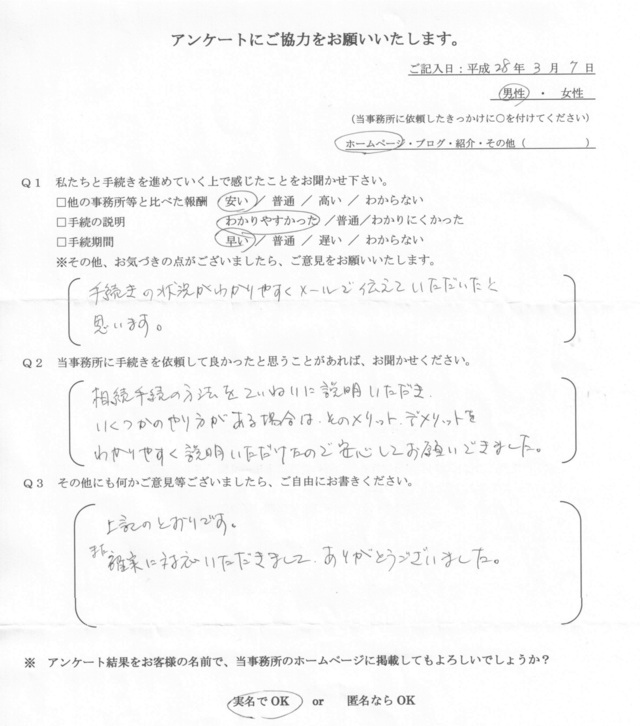 アンケートにご協力をお願いいたします。
ご記入日：平成28年3月7日
男性 ・ 女性
（当事務所に依頼したきっかけに○を付けてください）
ホームページ・ブログ・紹介・その他（　　　　　）
Q1 私たちと手続きを進めていく上で感じたことをお聞かせ下さい。
□他の事務所等と比べた報酬 安い ／ 普通 ／ 高い ／ わからない
□手続の説明 わかりやすかった ／普通／わかりにくかった
□手続期間 早い ／ 普通 ／ 遅い ／ わからない
※その他、お気づきの点がございましたら、ご意見をお願いいたします。
手続きの状況がわかりやすくメールで伝えていただいたと
思います。
Q2 当事務所に手続きを依頼して良かったと思うことがあれば、お聞かせください。
相続手続の方法をていねいに説明いただき、
いくつかのやり方がある場合は、そのメリット、デメリットを
わかりやすく説明いただけたので安心してお願いできました。
Q3 その他にも何かご意見等ございましたら、ご自由にお書きください。
上記のとおりです。
また確実に対応いただきまして、ありがとうございました。
※ アンケート結果をお客様の名前で、当事務所のホームページに掲載してもよろしいでしょうか？
実名でOK or 匿名ならOK